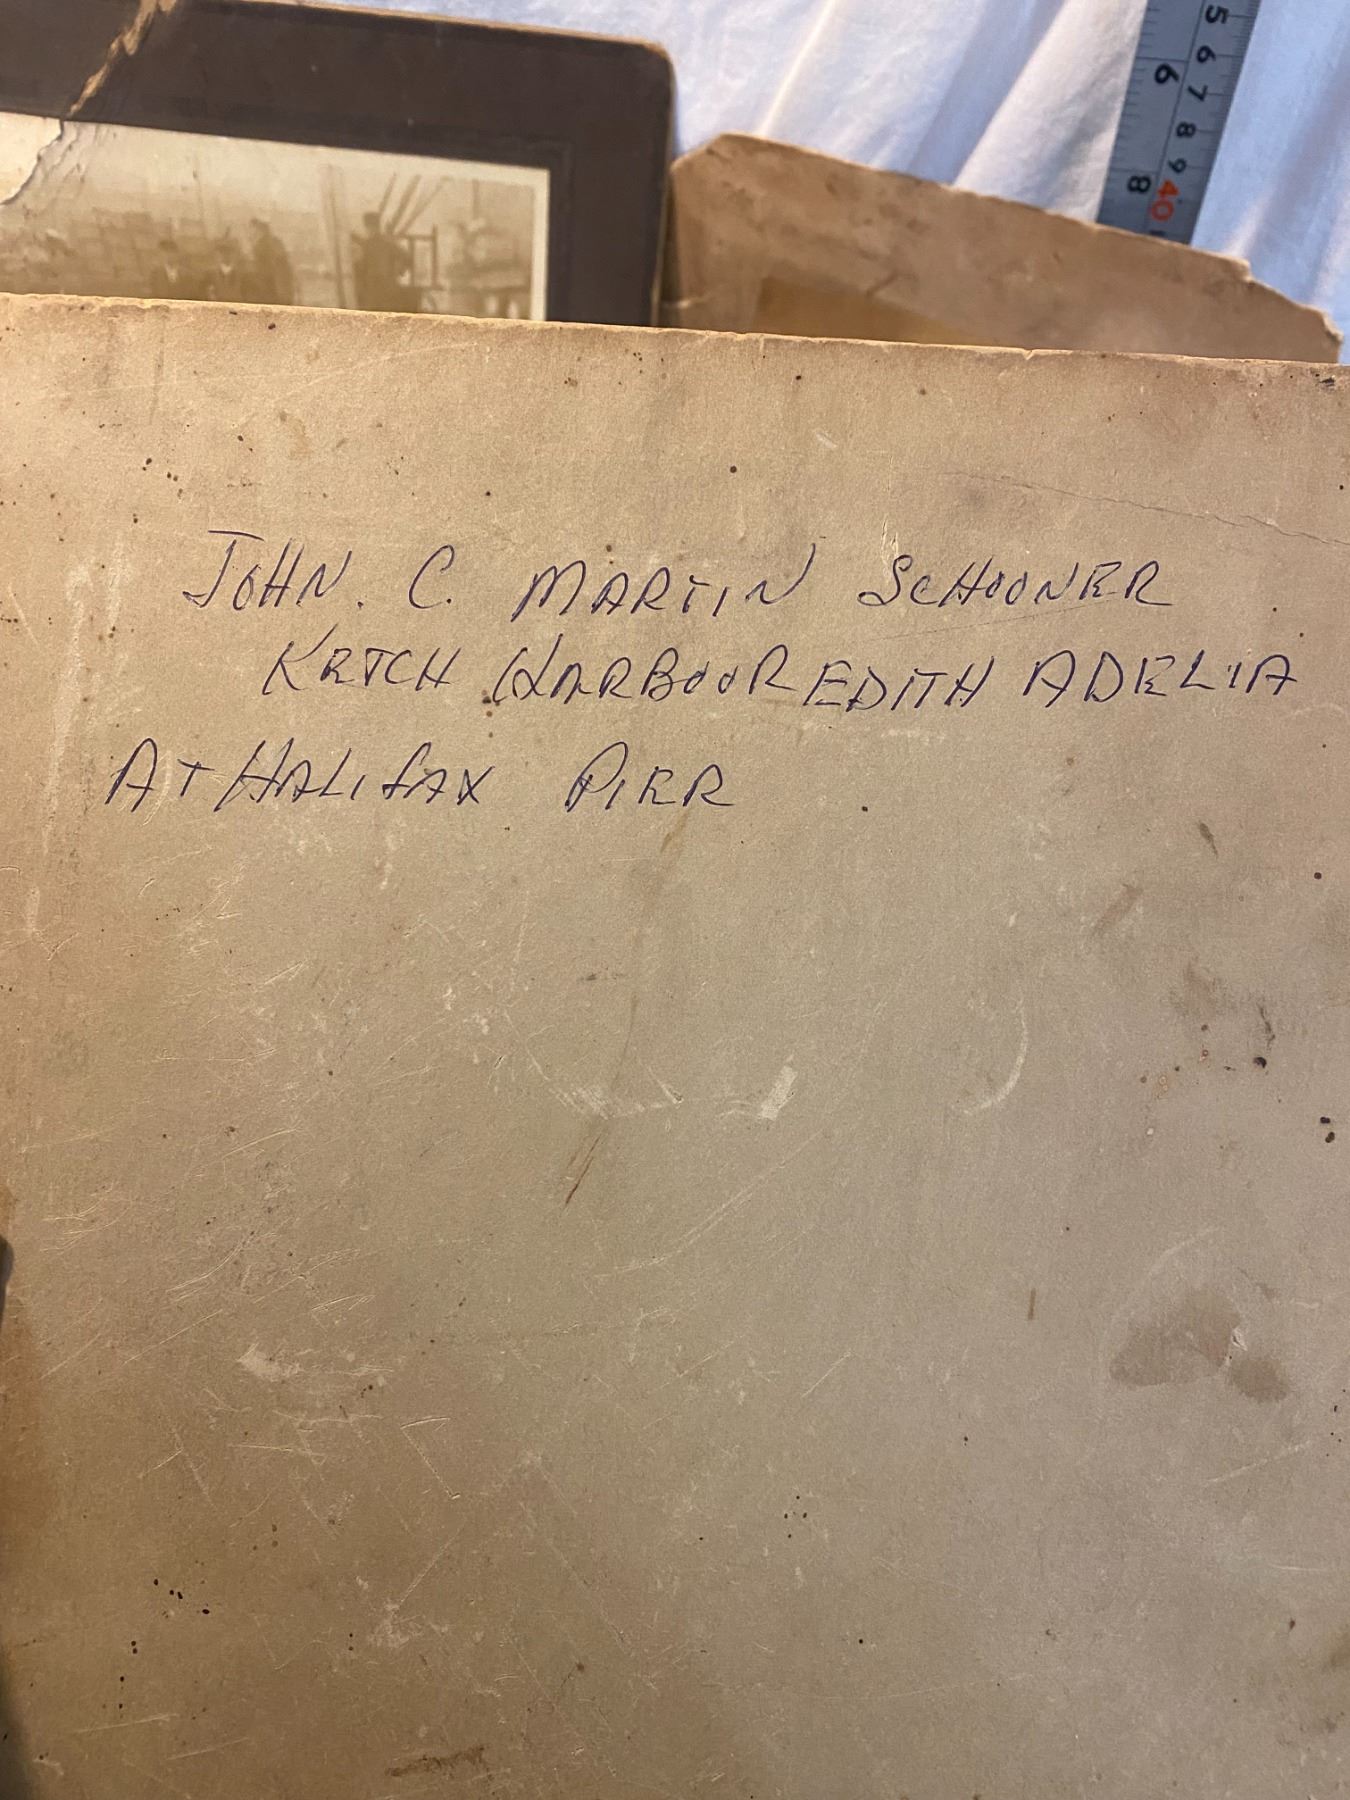 5 6 7 8 9 40
6 8
JOHN. C. MARTIN SCHOONER
KETCH HARBOOR EDITH ADELIA
AT HALIFAX PIER